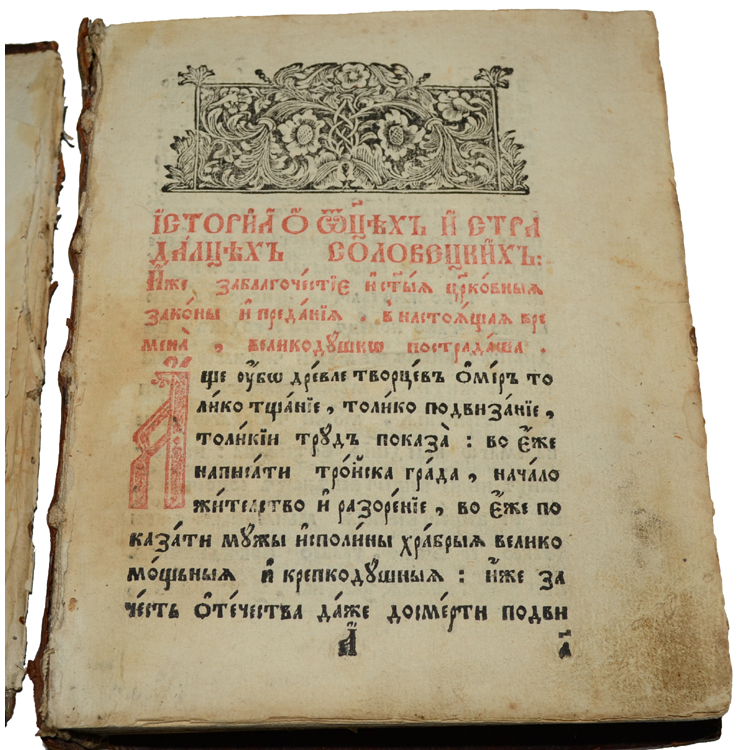 І҆СТОРИ́А Ѡ҆ Ѿц҃ѢХЪ И҆ СТРА
ДА́ЛЦѢХЪ СОЛОВЕЦКИ́ХЪ:
И҆́же забалгоче́стїе и҆ ст҃ы́ѧ цр҃ко́вныѧ
зако́ны и҆ преда́нїѧ . в настоѧ́щаѧ вре
мена̀ , великоду́шнѡ пострада́ша .
А҆́ще ѹ҆́бѡ дре́вле творцевъ О҆ме́ръ то
ли́ко тща́нїе , толи́ко подвиза́нїе ,
толи́кїи трудъ показа̀ : во е҆́же
написа́ти тро́йска гра́да , нача́ло
жи́телство и҆ разоре́нїе , во е҆́же по
каза́ти мужы и҆споли́ны хра́брыѧ велико
мо́щьныѧ и҆ крепкоду́шныѧ : и҆́же за
че́сть О҆те́чества да́же досме́рти подви
А҃ а҃